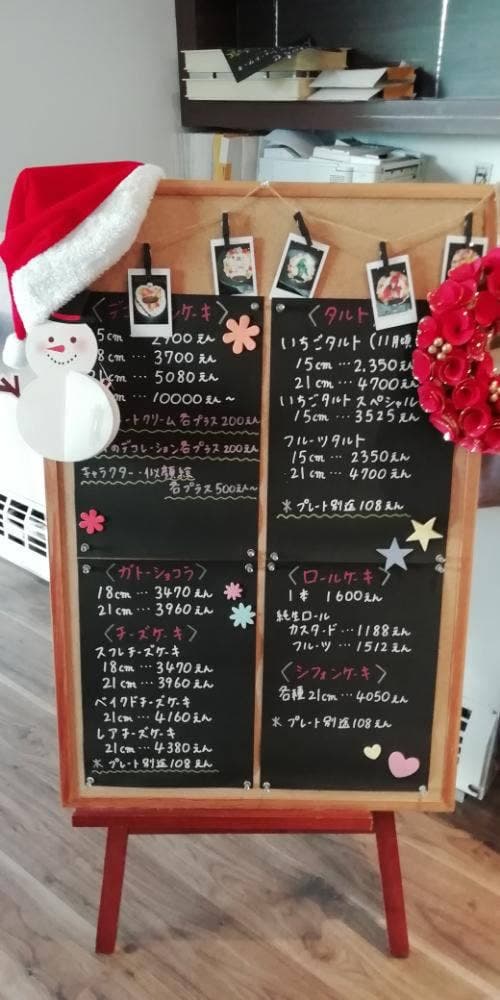 〈デ ケーキ〉
5cm … 2700えん
8cm … 3700えん
cm … 5080えん
cm … 10000えん〜
ートクリーム各プラス200えん
のデコレーション各プラス200えん
キャラクター・似顔絵
各プラス500えん〜
〈ガトーショコラ〉
18cm … 3470えん
21cm … 3960えん
〈チーズケーキ〉
スフレチーズケーキ
18cm … 3470えん
21cm … 3960えん
ベイクドチーズケーキ
21cm … 4160えん
レアチーズケーキ
21cm … 4380えん
※ プレート別途108えん
〈タルト
いちごタルト (11月頃
15cm … 2,350えん
21cm … 4700えん
いちごタルト スペシャル
15cm … 3525えん
フルーツタルト
15cm … 2350えん
21cm … 4700えん
※ プレート別途108えん
〈ロールケーキ〉
1本 1600えん
純生ロール
カスタード … 1188えん
フルーツ … 1512えん
〈シフォンケーキ〉
各種21cm … 4050えん
※ プレート別途108えん